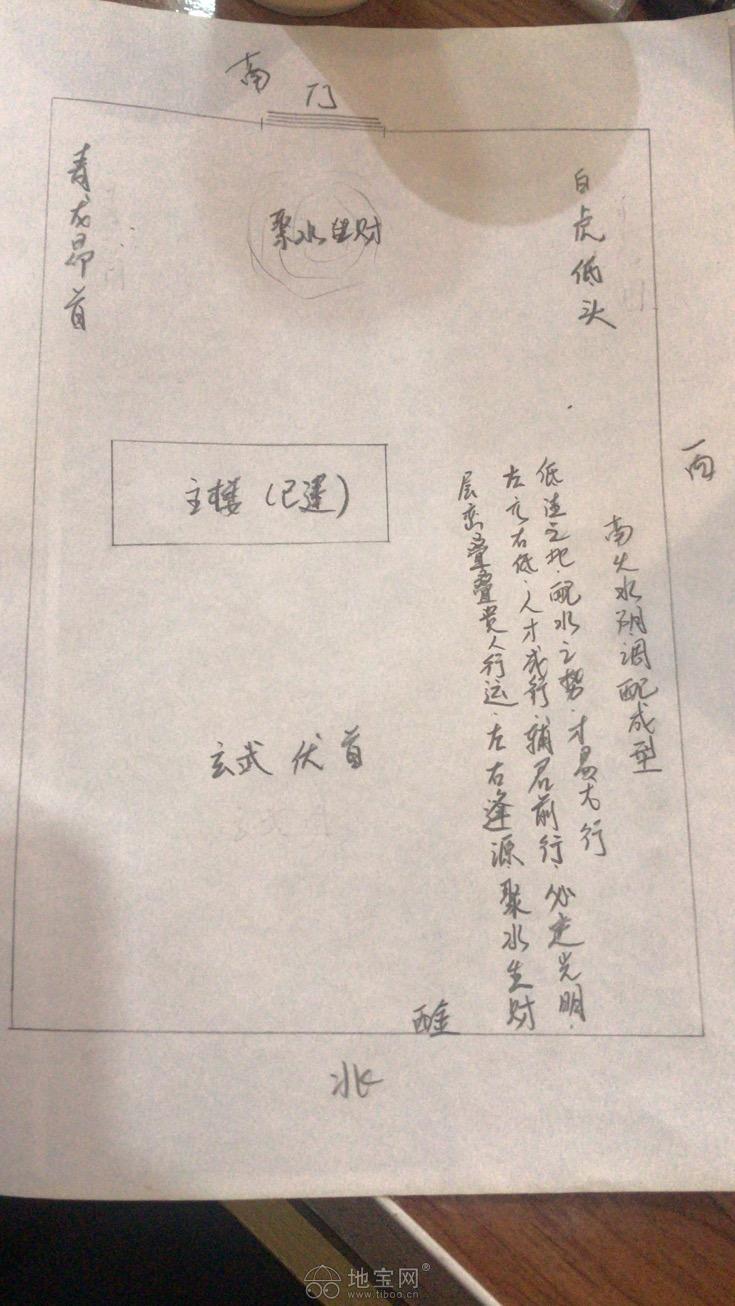 南
门
青龙昂首
聚水生财
白虎低头
西
主楼（已建）
南火水阴调配成型
低洼之地．配水之势．才易大行
左高右低．人才成行．辅君前行．必走光明．
层峦叠叠贵人行运．左右逢源．聚水生财
玄武伏首
北
地宝网®
www.tiboo.cn